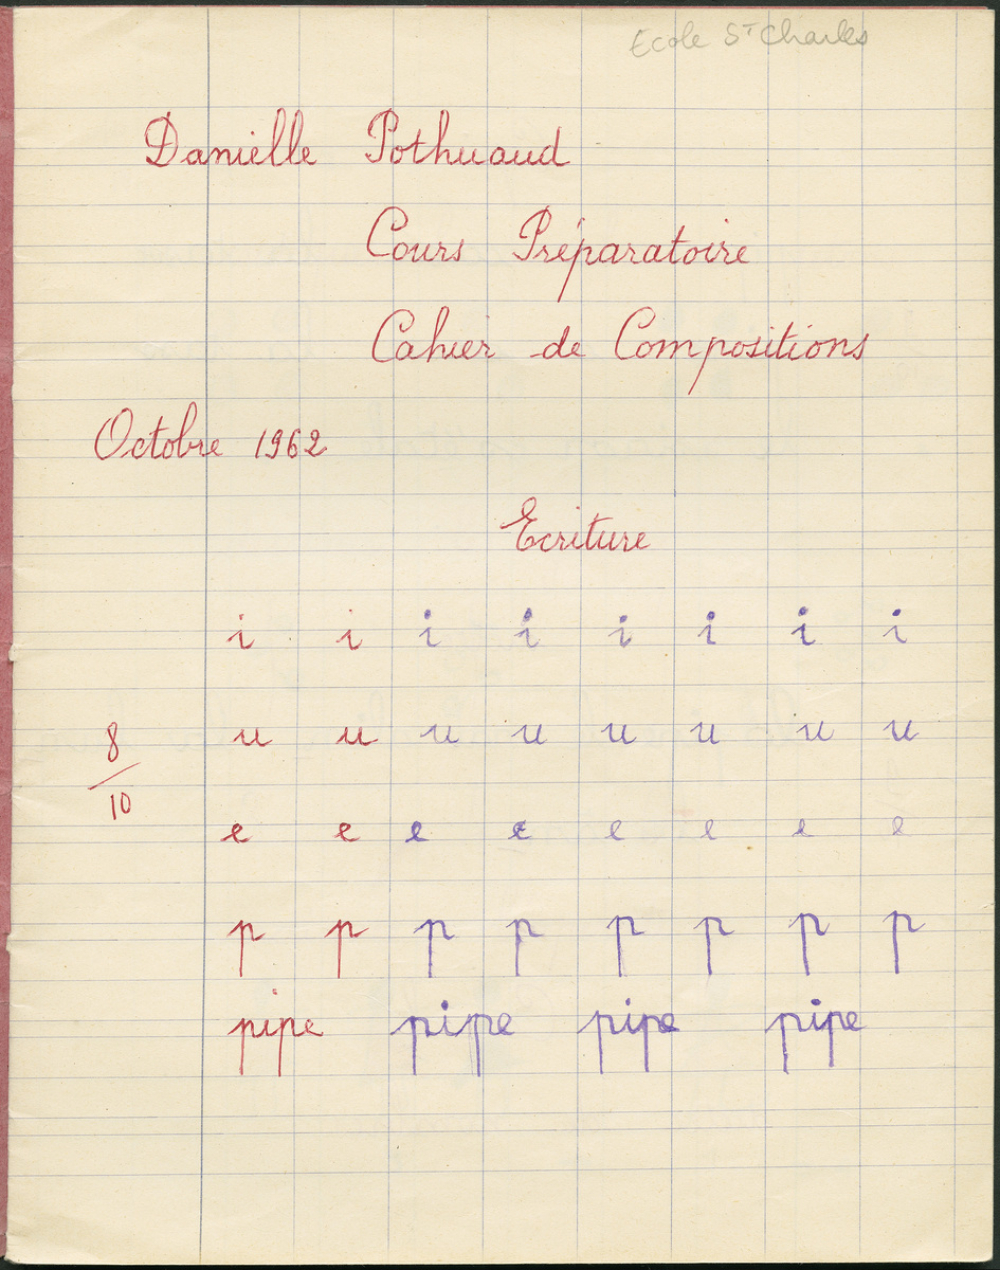 Ecole St Charles
Danielle Pothuaud
Cours Préparatoire
Cahier de Compositions
Octobre 1962
Ecriture
i i i i i i i i
8/10
u u u u u u u u
e e e e e e e e
p p p p p p p p
pipe pipe pipe pipe